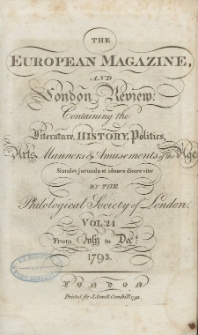 THE
EUROPEAN MAGAZINE,
AND
London Review:
Containing the
Literature, HISTORY, Politics,
Arts, Manners & Amusements of the Age
Simul et jucunda et idonea dicere vitæ
BY THE
Philological Society of London.
VOL. 24
From July to Decr.
1793.
LONDON
Printed for J. Sewell Cornhill 1793.